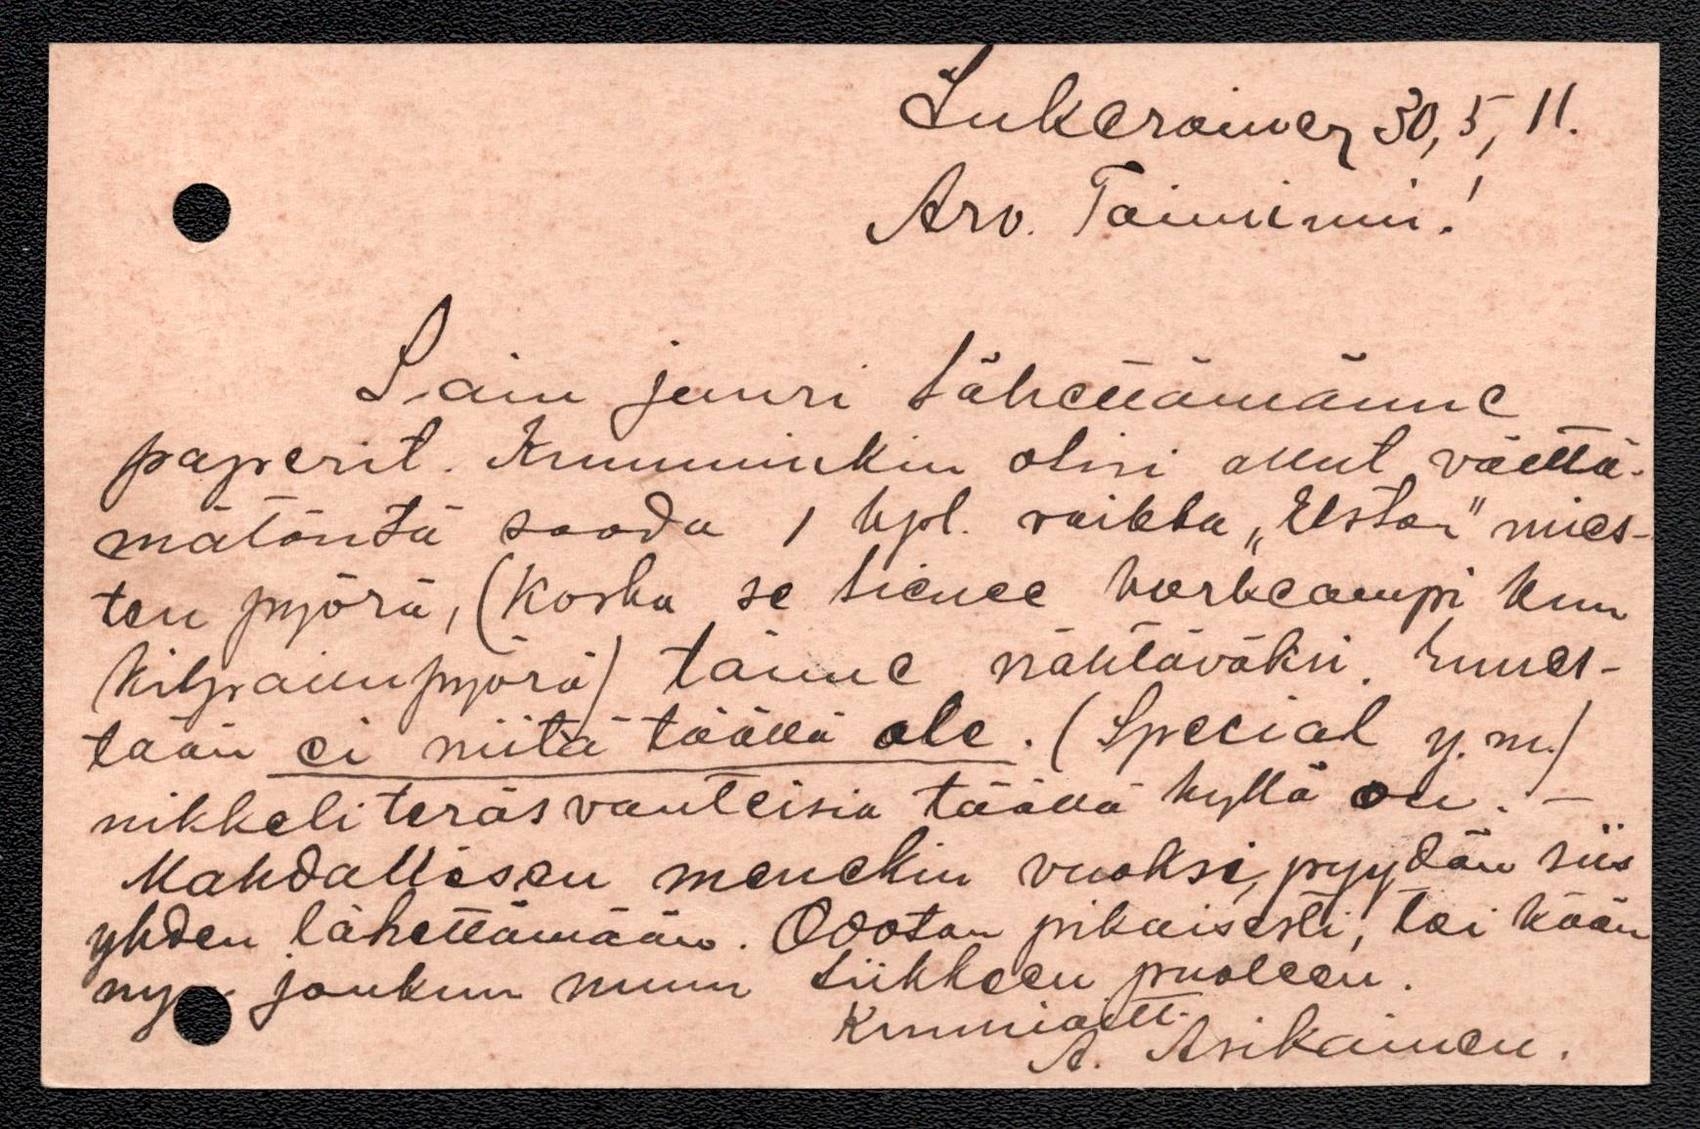 30, 5, 11.
Arv. Toiminimi!
Sain juuri lähettämänne
paperit. Kumminkin olisi ollut välttä-
mätöntä saada 1 kpl. vaikka „Ester" mies-
ten pyörä, (koska se lienee korkeampi kun
kilpaileupyörä) tänne nähtäväksi. Ennes-
tään ei niitä täällä ole. (Special y. m.)
nikkeliteräsvanteisia täällä kyllä on. —
Mahdollisen menekin vuoksi, pyydän siis
yhden lähettämään. Odotan pikaisesti, tai kään
nyn jonkun muun liikkeen puoleen.
Kunnioitt.
A. Asikainen.